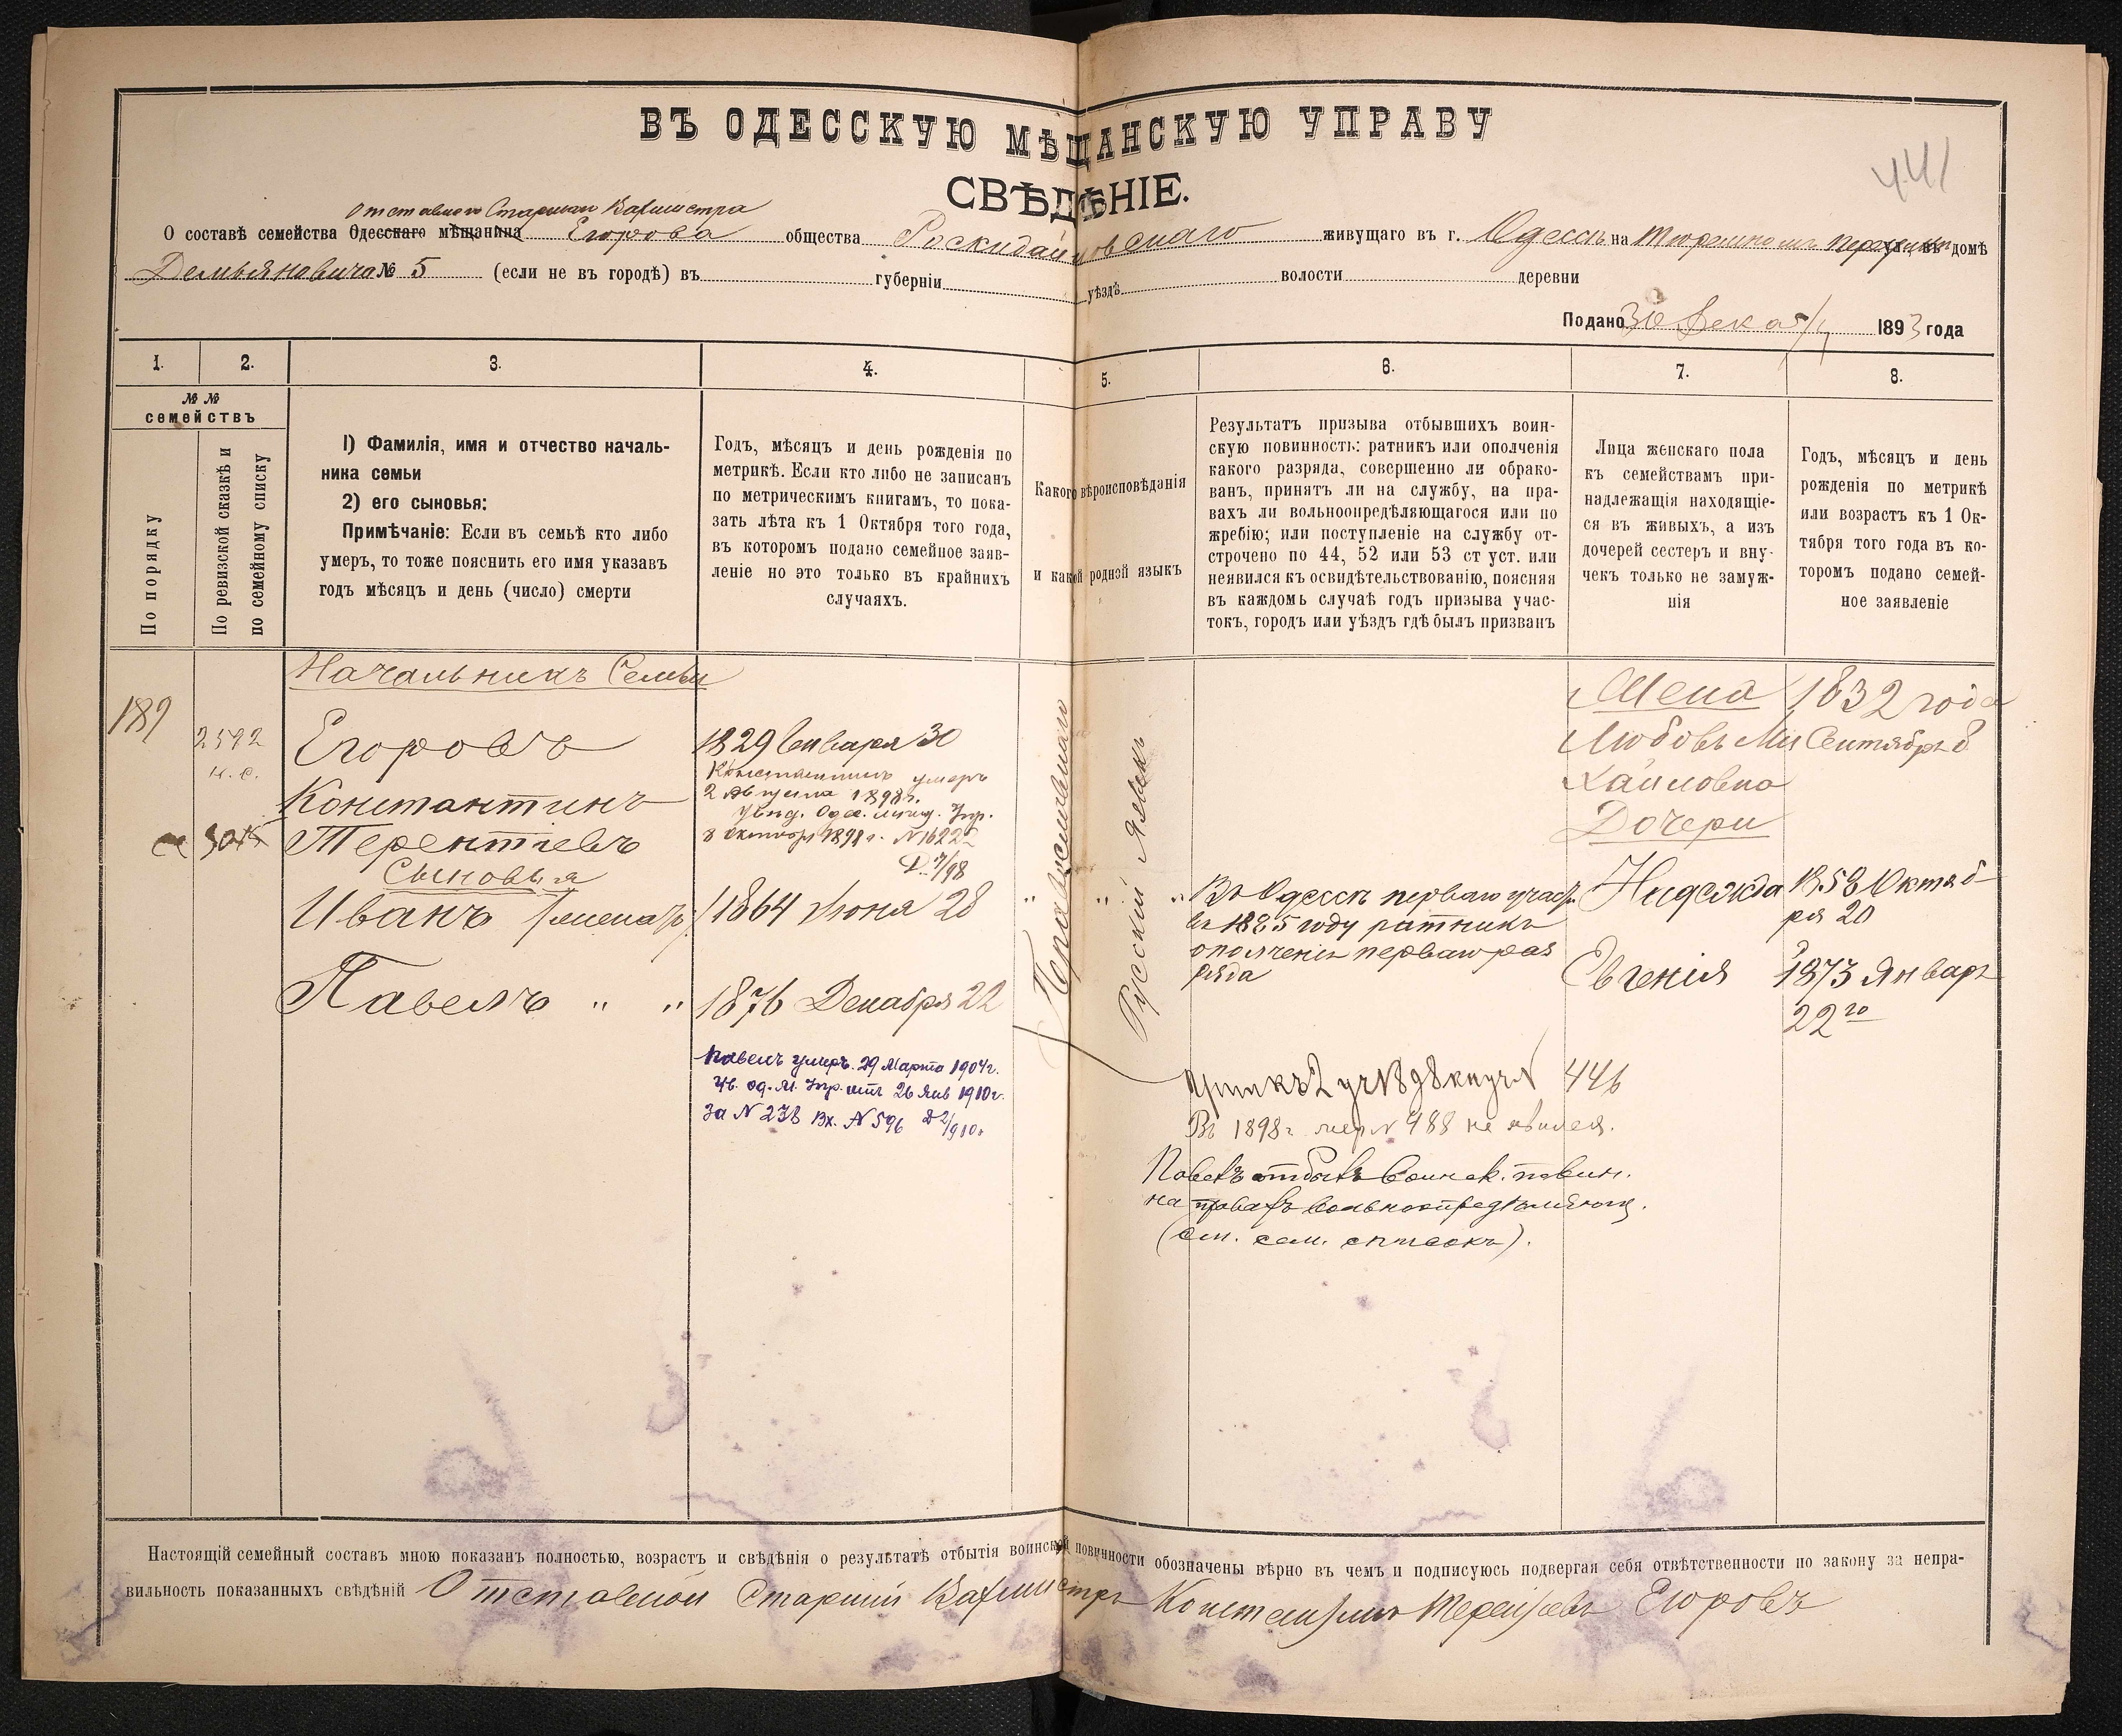 ВЪ ОДЕССКУЮ МѢЩАНСКУЮ УПРАВУ
441
СВѢДѢНІЕ.
Отставного Старшаго Вахмистра
О составѣ семейства Одесскаго мѣщанина Егорова общества Роскидайловскаго живущаго въ г. Одессѣ на Тюремномъ переулкѣ въ домѣ
Демьяновича № 5 (если не въ городѣ) въ губерніи уѣздѣ волости деревни
Подано 30 Декабря 1893 года
1. 2. 3. 4. 5. 6. 7. 8.
№ № семействъ
По порядку
По ревизской сказкѣ и
по семейному списку
1) Фамилія, имя и отчество началь-
ника семьи
2) его сыновья:
Примѣчаніе: Если въ семьѣ кто либо
умеръ, то тоже пояснить его имя указавъ
годъ мѣсяцъ и день (число) смерти
Годъ, мѣсяцъ и день рожденія по
метрикѣ. Если кто либо не записанъ
по метрическимъ книгамъ, то пока-
зать лѣта къ 1 Октября того года,
въ которомъ подано семейное заяв-
леніе но это только въ крайнихъ
случаяхъ.
Какого вѣроисповѣданія
и какой родной языкъ
Результатъ призыва отбывшихъ воин-
скую повинность: ратникъ или ополченія
какого разряда, совершенно ли обрако-
ванъ, принятъ ли на службу, на пра-
вахъ ли вольноопредѣляющагося или по
жребію; или поступленіе на службу от-
строчено по 44, 52 или 53 ст уст. или
неявился къ освидѣтельствованію, поясняя
въ каждомъ случаѣ годъ призыва учас-
токъ, городъ или уѣздъ гдѣ былъ призванъ
Лица женскаго пола
къ семействамъ при-
надлежащія находящіе-
ся въ живыхъ, а изъ
дочерей сестеръ и вну-
чекъ только не замуж-
нія
Годъ, мѣсяцъ и день
рожденія по метрикѣ
или возрастъ къ 1 Ок-
тября того года въ ко-
торомъ подано семей-
ное заявленіе
Начальникъ Семьи
189
2592
н. с.
Егоровъ
Константинъ
Терентіевъ
Сыновья
Иванъ
Павелъ " "
1829 Января 30
Константинъ умеръ
2 Августа 1898г.
Увѣд. Одес. мѣщ. Упр.
8 октября 1898 г. N 16222
1864 Іюня 28
1876 Декабря 22
Павелъ умеръ. 29 Марта 1904г.
Ув. од. М. Упр. отъ 26 Янв 1910г.
За N 278 Вх. N 596
Православнаго
Русскій Языкъ
" " "
Въ Одессѣ перваго участ.
въ 1885 году ратникъ
ополченія перваго раз
ряда
446
Въ 1898г. жер N 988 не явился.
Павелъ отбылъ воинск. повин.
на правахъ вольноопредѣляющ.
(См. сем. списокъ).
Жена
Любовь Ми
хайловна
Дочери
Надежда
Евгенія
1832 года
Сентября 8
1858 Октяб-
ря 20
1873 Январь
22го
Настоящій семейный составъ мною показанъ полностью, возрастъ и свѣдѣнія о результатѣ отбытія воинской повинности обозначены вѣрно въ чемъ и подписуюсь подвергая себя отвѣтственности по закону за непра-
вильность показанныхъ свѣдѣній Отставной Старшій Вахмистръ Константинъ Терентіевъ Егоровъ